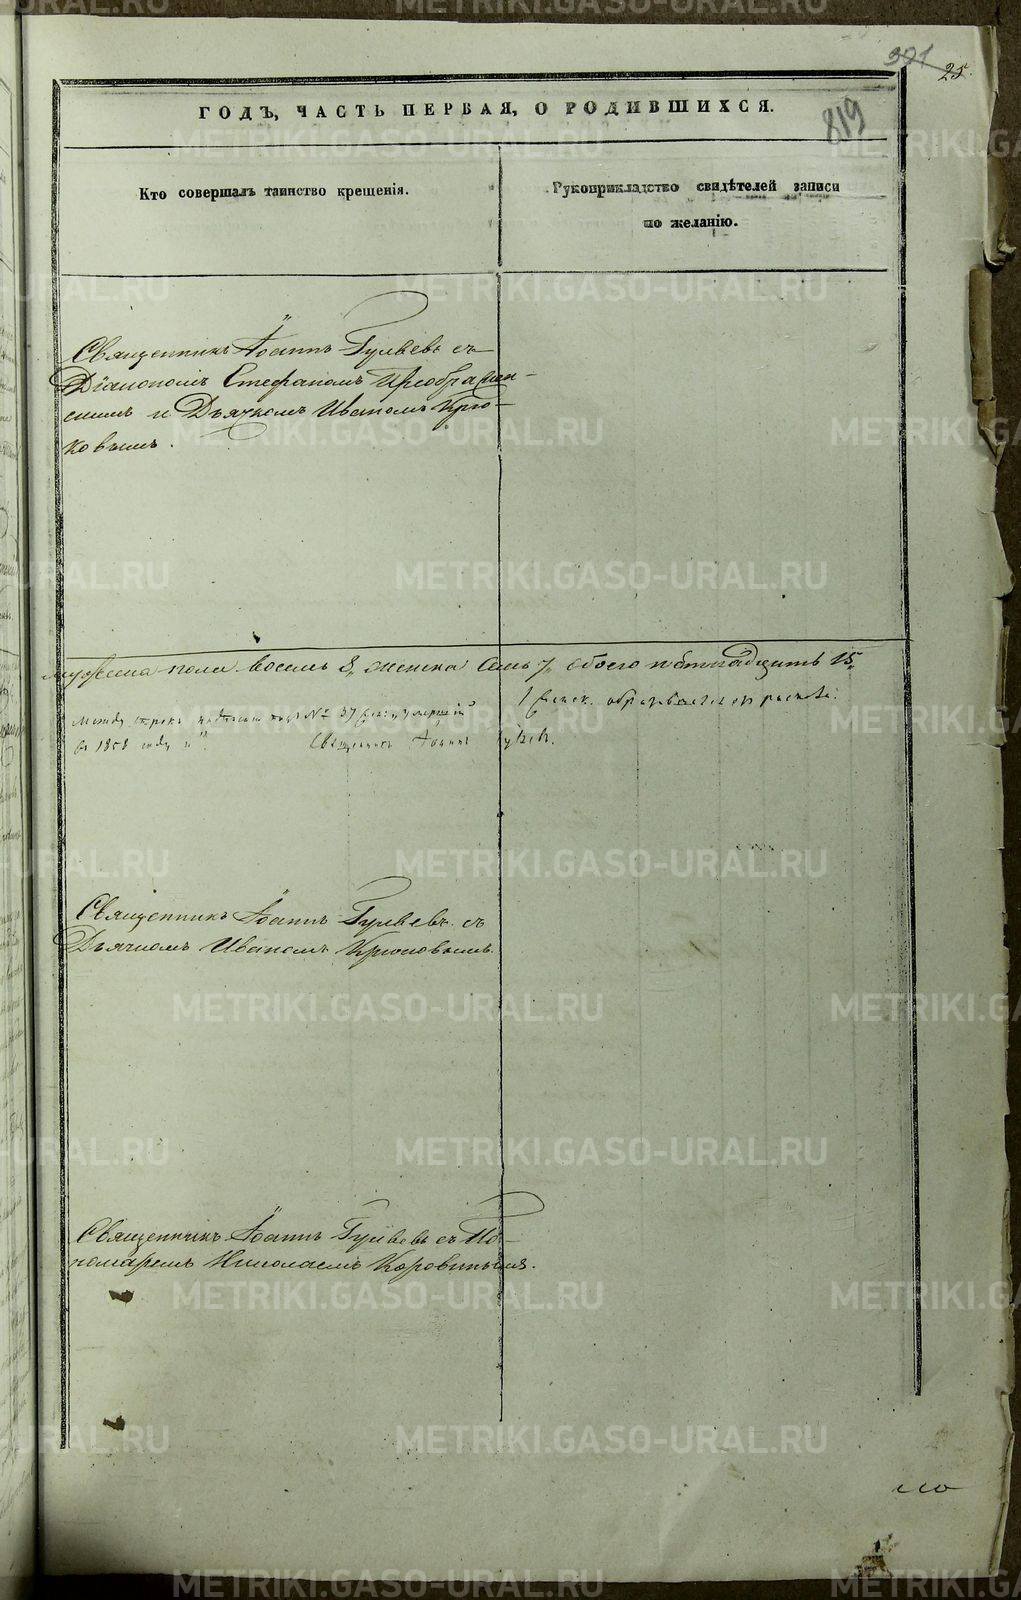 301 25.
ГОДЪ, ЧАСТЬ ПЕРВАЯ, О РОДИВШИХСЯ.
819
Кто совершалъ таинство крещенія.
Рукоприкладство свидѣтелей записи
по желанію.
Священникъ Іоаннъ Гуляевъ съ
Діакономъ Стефаномъ Преображен-
скимъ и Дьячкомъ Иваномъ Крю-
ковымъ.
мужеска пола восемь 8, женска семь 7, обоего пятнадцать 15,
Между строкъ надписано подъ № 37
въ 1858 году и
Священникъ Іоаннъ
Священникъ Іоаннъ Гуляевъ съ
Дьячкомъ Иваномъ Крюковымъ.
Священникъ Іоаннъ Гуляевъ съ По-
номаремъ Николаемъ Коровинымъ.
METRIKI.GASO-URAL.RU